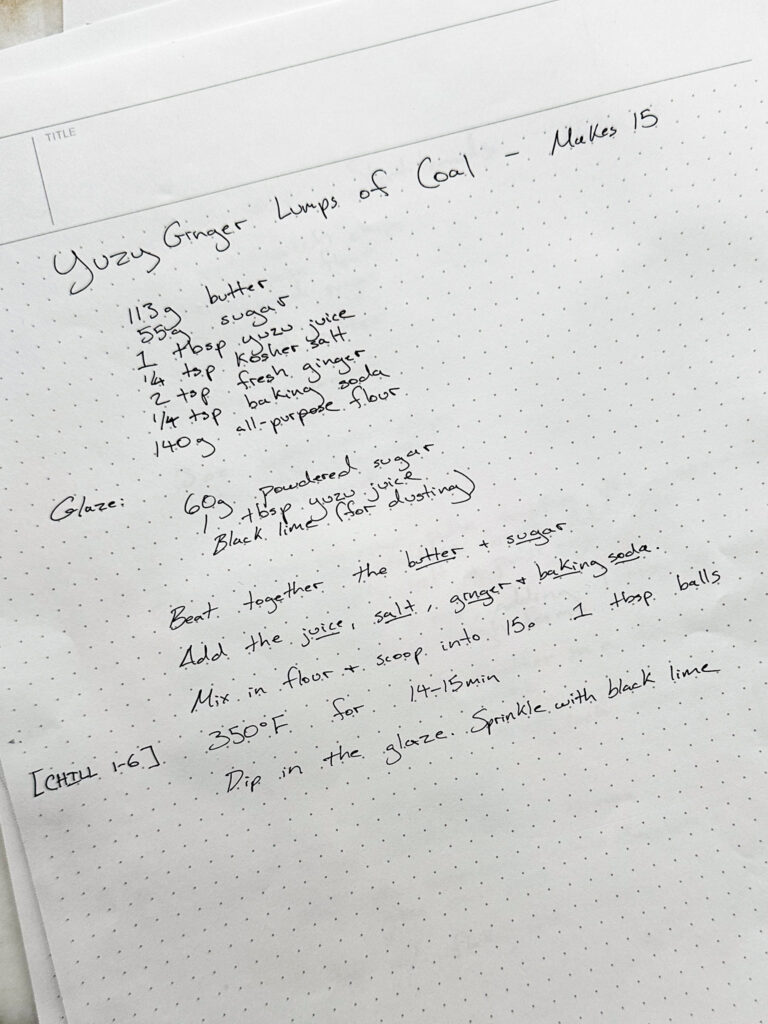 TITLE
Yuzy Ginger Lumps of Coal - Makes 15
113g butter
55g sugar
1 tbsp yuzu juice
1/4 tsp kosher salt
2 tsp fresh ginger
1/4 tsp baking soda
140g all-purpose flour
Glaze: 60g powdered sugar
1 tbsp yuzu juice
Black lime (for dusting)
Beat together the butter + sugar
Add the juice, salt, ginger + baking soda.
Mix in flour + scoop into 15. 1 tbsp balls
[CHILL 1-6] 350°F for 14-15min
Dip in the glaze. Sprinkle with black lime